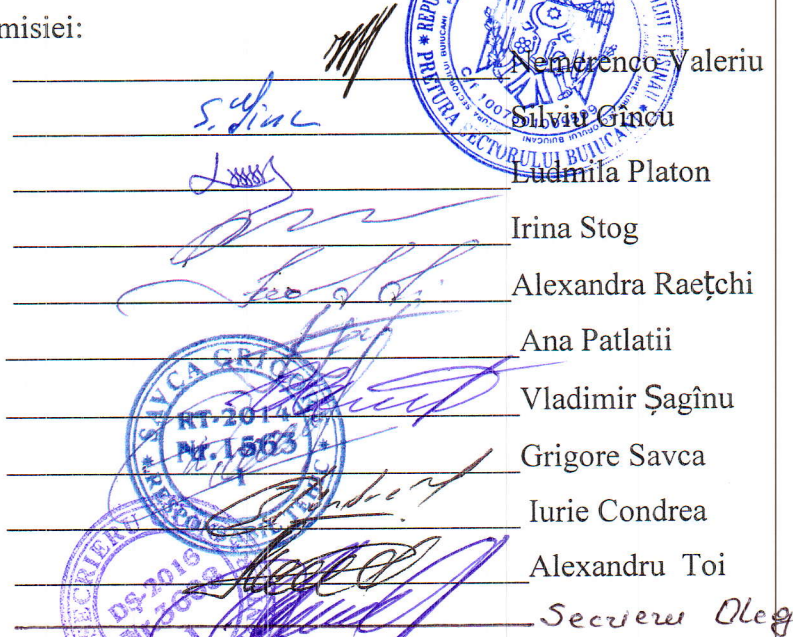 misiei:
Nemerenco Valeriu
Silviu Gîncu
Ludmila Platon
Irina Stog
Alexandra Raețchi
Ana Patlatii
Vladimir Șagînu
Grigore Savca
Iurie Condrea
Alexandru Toi
Secrieru Oleg
PRETURA SECTORULUI BUIUCANI
SAVCA GRIGORE
RT-2014
Nr.1563
SECRIERU
DȘ-2016